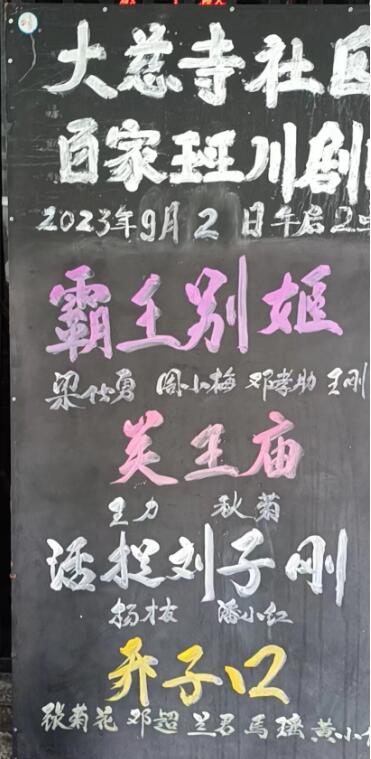 大慈寺社区
百家班川剧
2023年9月2日午后2
霸王别姬
梁仕勇 周小梅 邓孝助 王刚
关王庙
王力 秋菊
活捉刘子刚
扬枝 潘小红
乔子口
张菊花 邓超 兰君 馬瑶 黄小